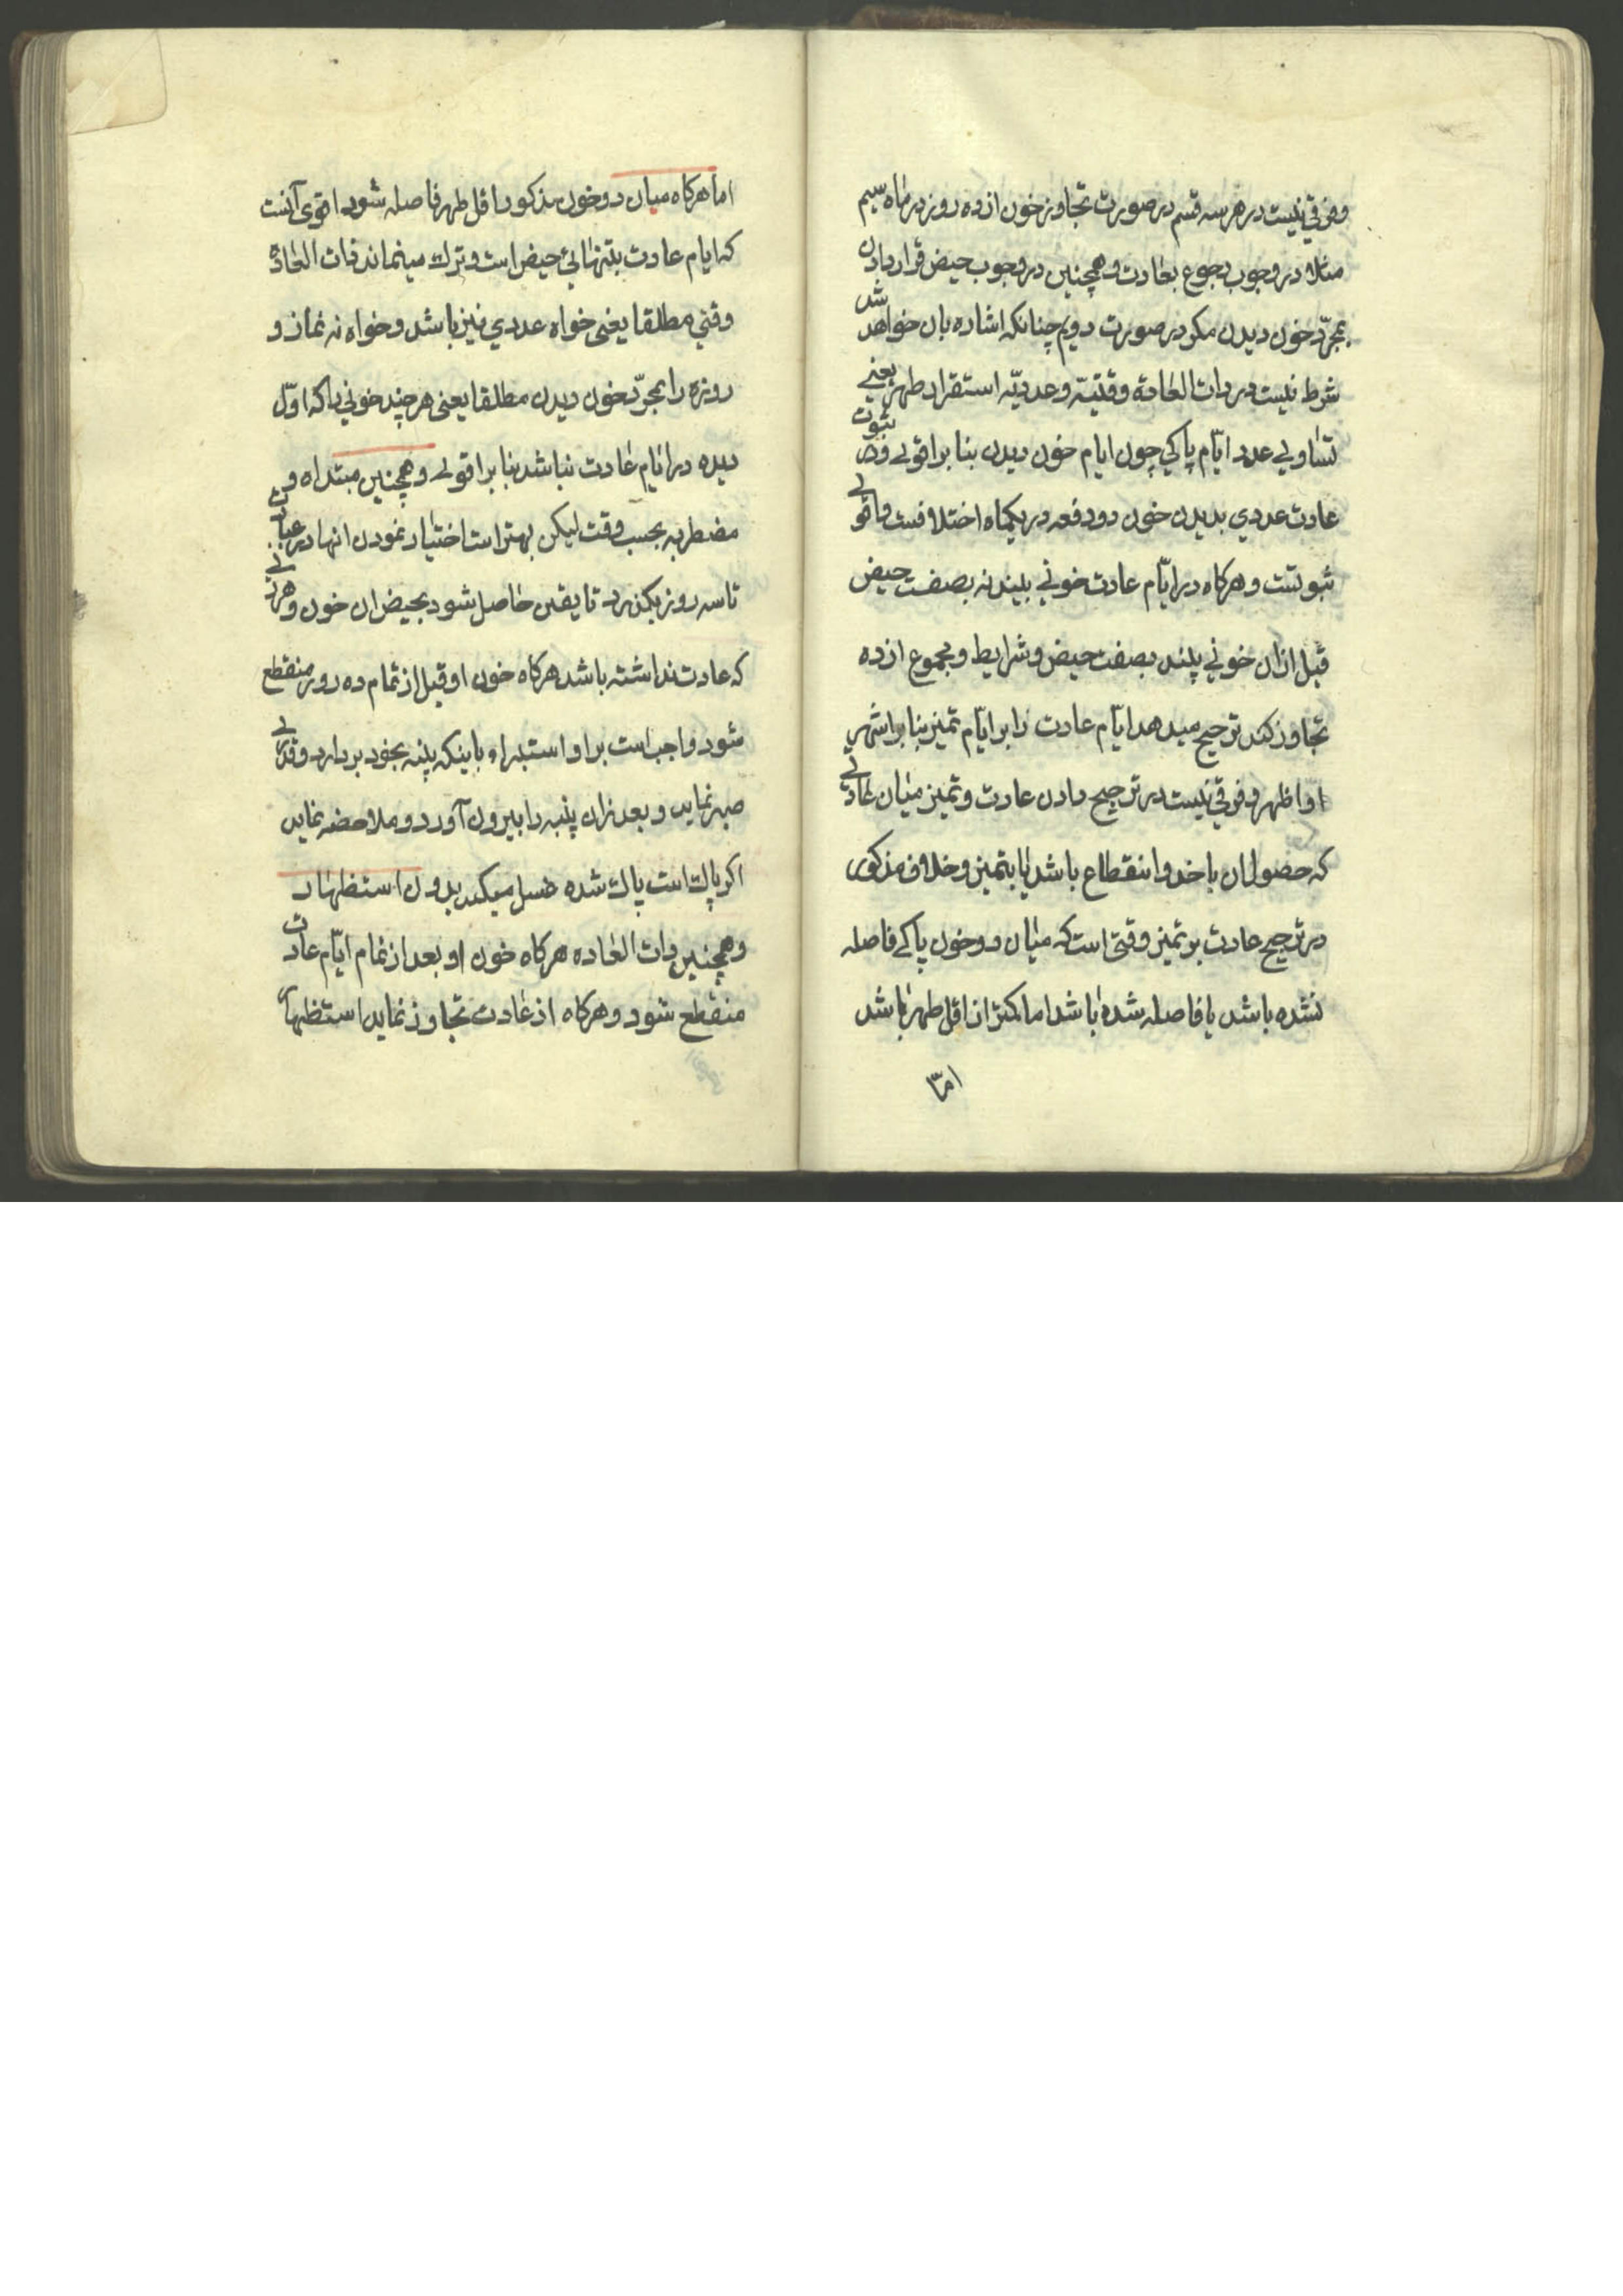 وفرقی نیست در هر سه قسم در صورت تجاوز خون از ده روز در ماه سیم
مثلا در وجوب رجوع بعادت و همچنین در وجوب حیض قرار دادن
بمجرّد خون دیدن مکر در صورت دویم چنانکه اشاره بان خواهد شد
شرط نیست در ذات العادة وقتیّه وعددیّه استقرار طهر یعنی
تساوی عدد ایّام پاکی چون ایام خون دیدن بنا بر اقوی و در ثبوت
عادت عددی بدیدن خون دو دفعه در یکماه اختلافست واقوی
ثبوتست و هرکاه در ایّام عادت خونی بیند نه بصفت حیض
قبل ازان خونی بیند بصفت حیض و شرایط و مجموع از ده
تجاوز کند ترجیح میدهد ایّام عادت را بر ایّام تمیز بنا بر اشهر
او اظهر و فرقی نیست در ترجیح دادن عادت و تمیز میان عادتی
که حصول ان باخذ و انقطاع باشد یا بتمیز و خلاف مذکور
در ترجیح عادت بر تمیز وقتی است که میان دو خون پاکی فاصله
نشده باشد یا فاصله شده باشد اما کمتر از اقل طهر باشد
اما
اما هرکاه میان دو خون مذکور اقل طهر فاصله شود اقوی آنست
که ایام عادت بتنهائی حیض است و ترک مینماند ذات العاده
وقتی مطلقا یعنی خواه عددی نیز باشد و خواه نه نماز و
روزه را بمجرّد خون دیدن مطلقا یعنی هر چند خونی را که اوّل
دیده در ایّام عادت نباشد بنا بر اقوی و همچنین مبتداه و
مضطربه بحسب وقت لیکن بهتر است اختیار نمودن انها در عبادت
تا سه روز بکذرد تا یقین حاصل شود بحیض ان خون و هر زنی
که عادت نداشته باشد هرکاه خون او قبل از تمام ده روز منقطع
شود واجب است بر او استبراء باینکه پنبه بخود بردارد و قدری
صبر نماید و بعد ازان پنبه را بیرون آورد و ملاحضه نماید
اکر پاک است پاک شده غسل میکند بدون استظهار
و همچنین ذات العاده هرکاه خون او بعد از تمام ایّام عادت
منقطع شود و هرکاه از عادت تجاوز نماید استظهار